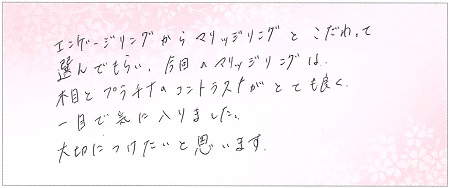 エンゲージリングからマリッジリングと こだわって
選んでもらい、今回のマリッジリングは、
木目とプラチナのコントラストがとても良く、
一目で気に入りました。
大切につけたいと思います。